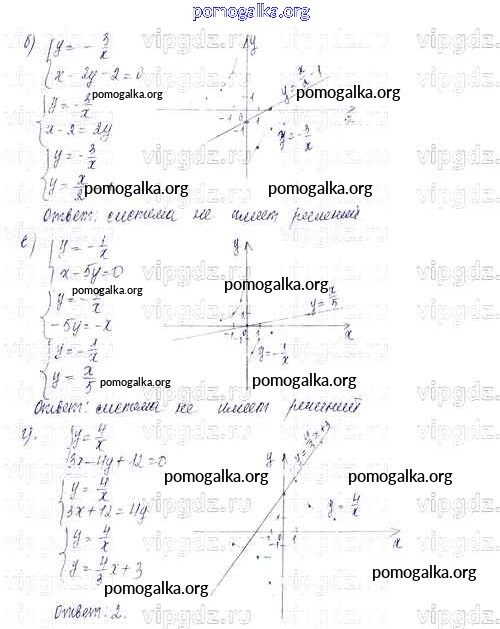 pomogalka.org
б) { y = -3/x
x - 2y - 2 = 0
{ y = -3/x
x - 2 = 2y
{ y = -3/x
y = x/2
y
y = x/2 - 1
y = -3/x
x
Ответ: система не имеет решений
в) { y = -1/x
x - 5y = 0
{ y = -1/x
-5y = -x
{ y = -1/x
y = x/5
y
y = x/5
y = -1/x
x
Ответ: система не имеет решений
г) { y = 4/x
3x - 4y + 12 = 0
{ y = 4/x
3x + 12 = 4y
{ y = 4/x
y = 4/3 x + 3
y
y = 4/x
x
Ответ: 2.
pomogalka.org
vipgdz.ru